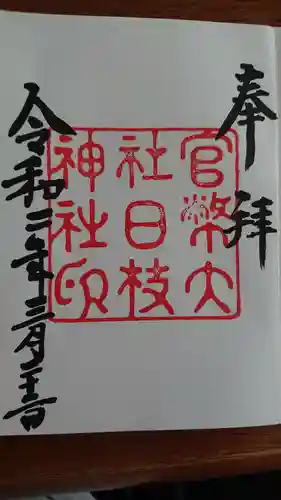 奉拝
官幣大
社日枝
神社印
令和二年三月二十一日